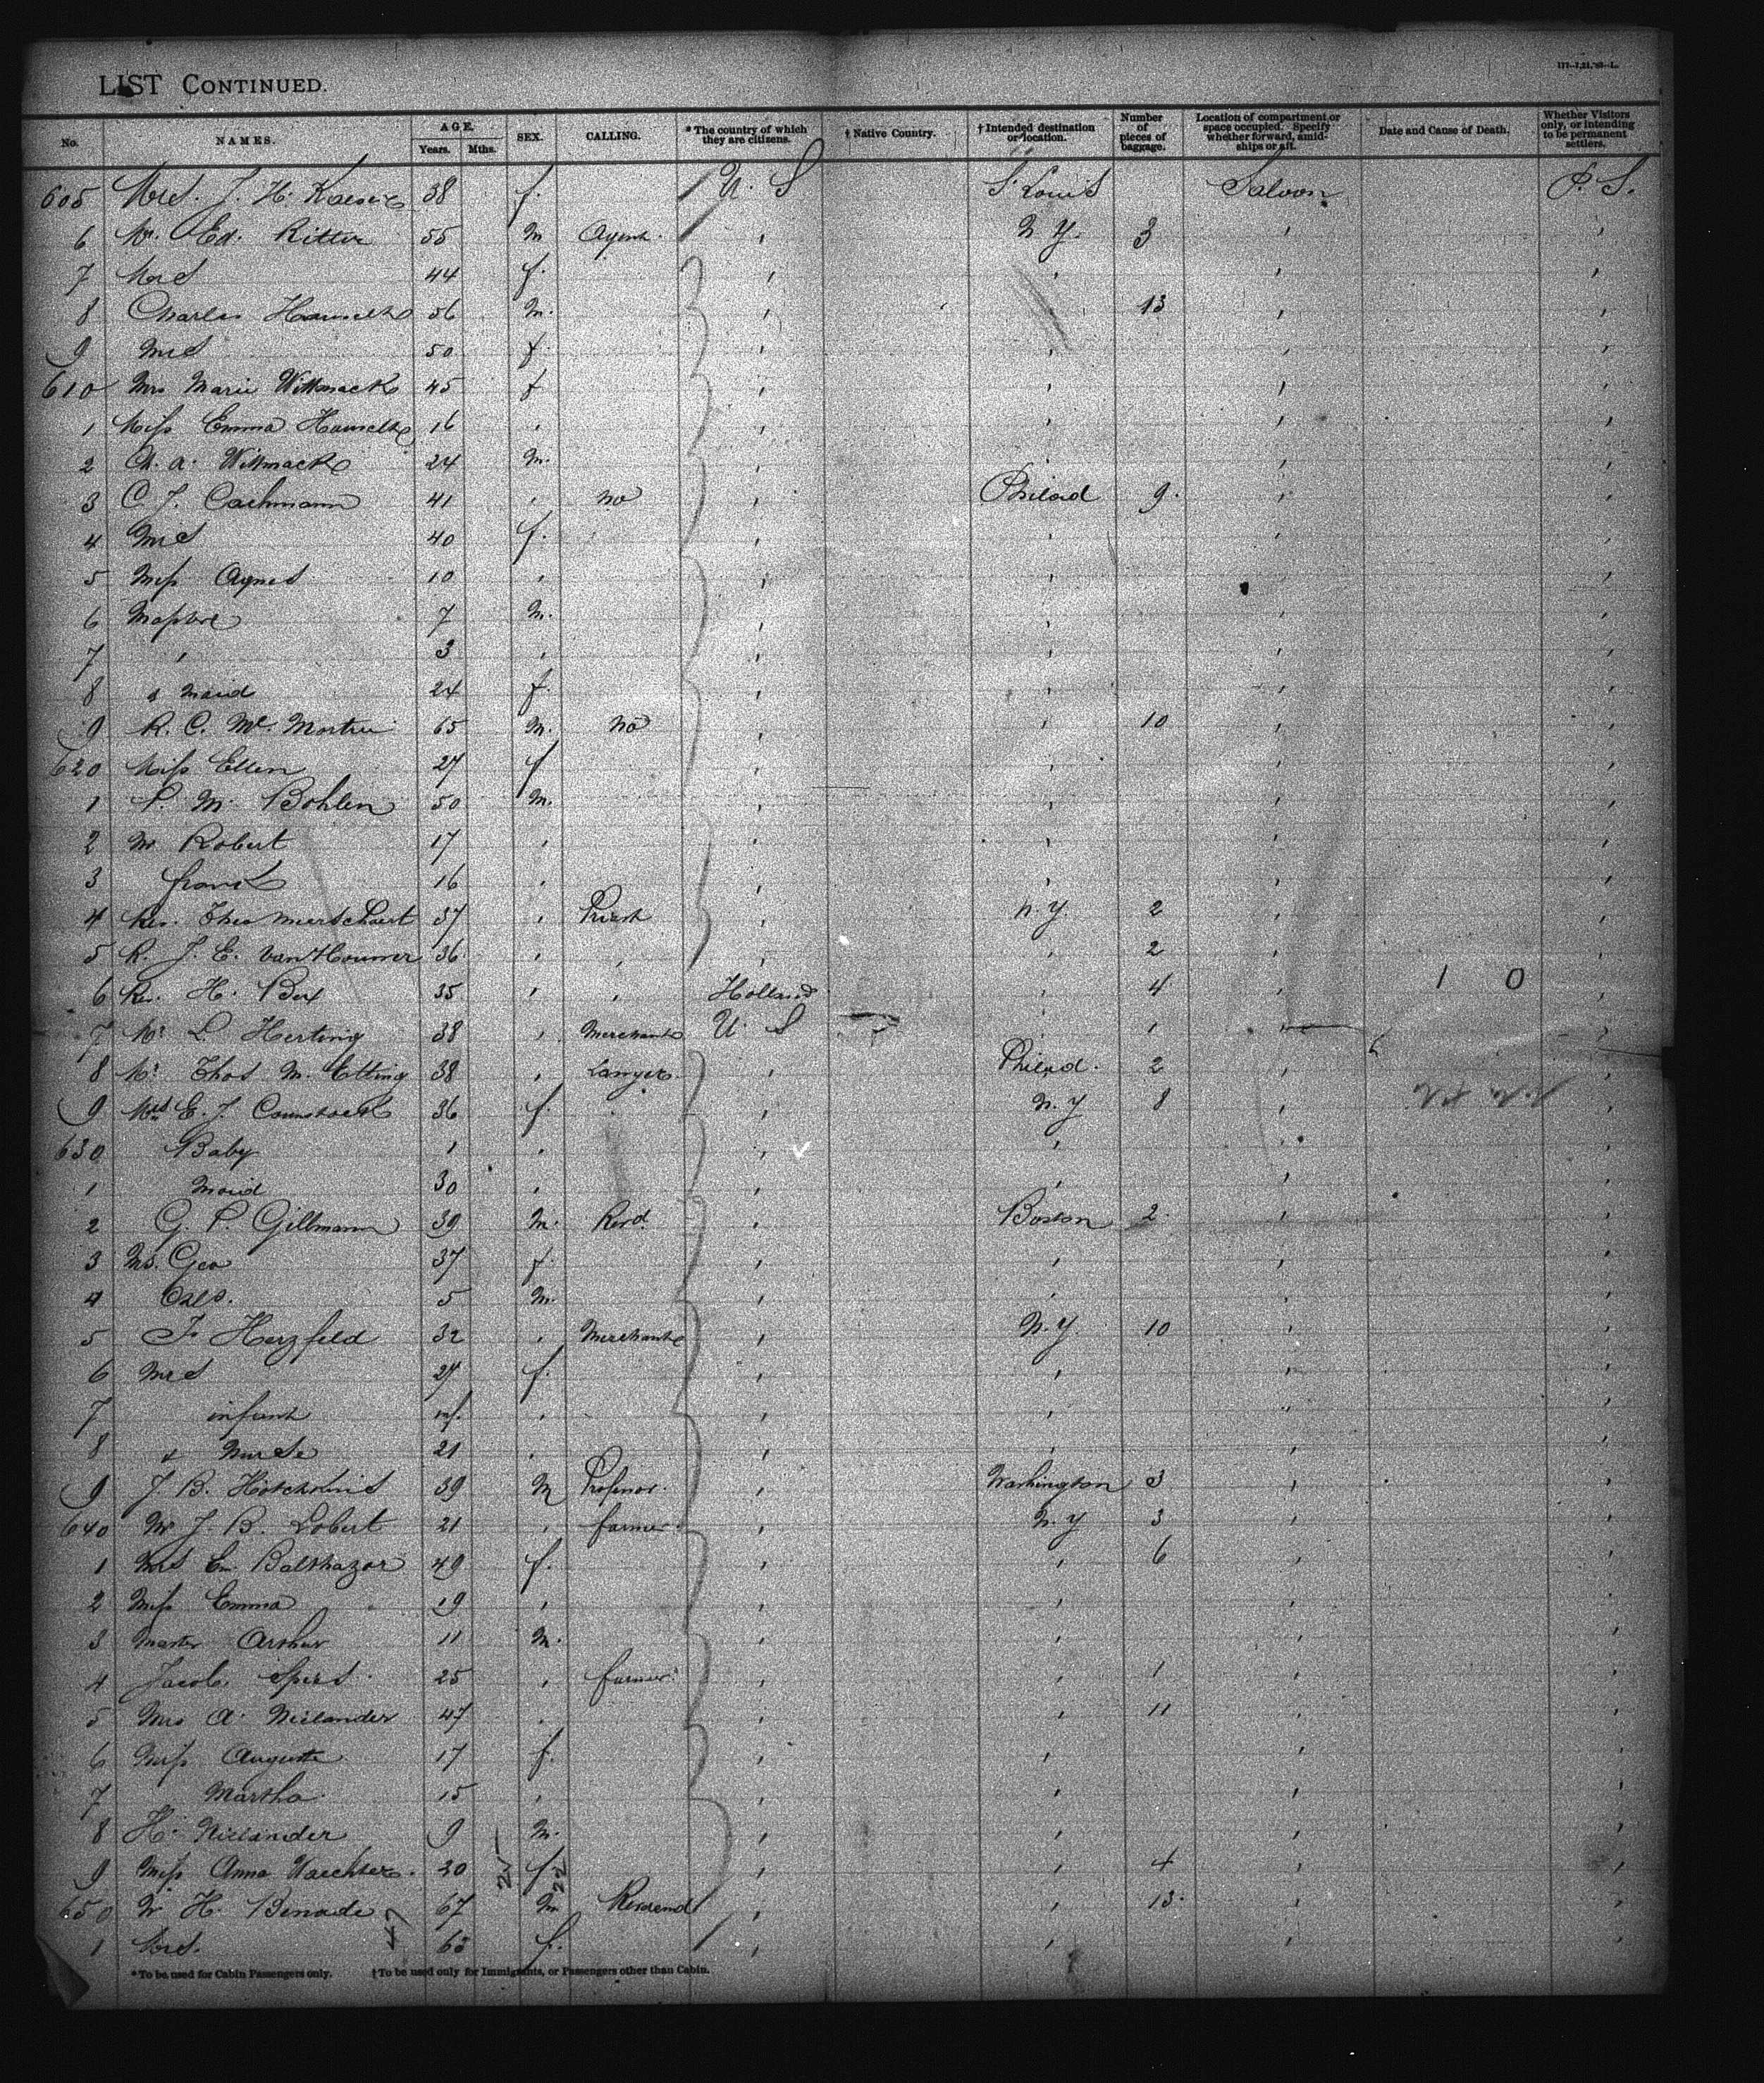 LIST CONTINUED.
No. NAMES. AGE. Years. Mths. SEX. CALLING. *The country of which they are citizens. †Native Country. †Intended destination or location. Number of pieces of baggage. Location of compartment or space occupied. Specify whether forward, amidships or aft. Date and Cause of Death. Whether Visitors only, or intending to be permanent settlers.
605 Mrs. J. H. 38 f. U. S St Louis Saloon P. S.
6 Mr. Ed. Ritter 55 M Agent. ' N. Y. 3 ' '
7 Mrs 44 f. ' ' ' '
8 Charles 56 M. ' 13 ' '
9 Mrs 50 f. ' ' ' '
610 Mrs Marie Wittmack 45 f ' ' ' '
1 Miss Emma 16 ' ' ' ' '
2 A. Wittmack 24 M. ' ' ' '
3 C. J. Cachmann 41 ' no ' Philad 9. ' '
4 Mrs 40 f. ' ' ' '
5 Miss Agnes 10 ' ' ' ' '
6 Master 7 M. ' ' ' '
7 ' 3 ' ' ' ' '
8 & Maid 24 f. ' ' ' '
9 R. C. Mc. 65 M. no ' ' 10 ' '
620 Miss Ellen 27 f ' ' ' '
1 P. M. Bohlen 50 M. ' ' ' '
2 Mr Robert 17 ' ' ' ' '
3 16 ' ' ' ' '
4 Rev. Theo 37 ' Priest ' N. Y. 2 ' '
5 R. J. E. 36 ' ' ' 2 ' '
6 Rev. H. 35 ' ' Holland ' 4 ' 1 0 '
7 Mr L. Herting 38 ' Merchant U. S ' 1 ' '
8 Mr Thos M. Etting 38 ' Lawyer ' Philad. 2 ' '
9 Mrs E. J. Comstock 36 f. ' N. Y 8 ' '
630 Baby 1 ' ' ' ' '
1 Maid 30 ' ' ' ' '
2 G. P. Gillmann 39 M. Revd. ' Boston 2. ' '
3 Ms. Geo 37 f. ' ' ' '
4 5 M. ' ' ' '
5 F. Herzfeld 32 ' Merchant ' N. Y. 10 ' '
6 Mrs 27 f. ' ' ' '
7 infant inf. ' ' ' " '
8 & Nurse 21 ' ' ' ' '
9 J. B. Hotchkiss 39 M Professor. ' Washington 3 ' '
640 Mr J. B. Lobert 21 ' farmer. ' N. Y 3 ' '
1 Mrs Em Balthazar 49 f. ' ' 6 ' '
2 Miss Emma 19 ' ' ' ' '
3 Master Arthur 11 M. ' ' ' '
4 Jacob Spies 25 ' farmer. ' ' 1 ' '
5 Mrs A. Nielander 47 ' ' ' 11 ' '
6 Miss Auguste 17 f. ' ' ' '
7 Martha 15 ' ' ' ' '
8 H. Nielander 9 M. ' ' ' '
9 Miss Anna Waechter. 20 f ' ' 4 ' '
650 W H. Benade 67 M Reverend ' ' 13. ' '
1 Mrs. f. ' ' ' '
*To be used for Cabin Passengers only. †To be used only for Immigrants, or Passengers other than Cabin.